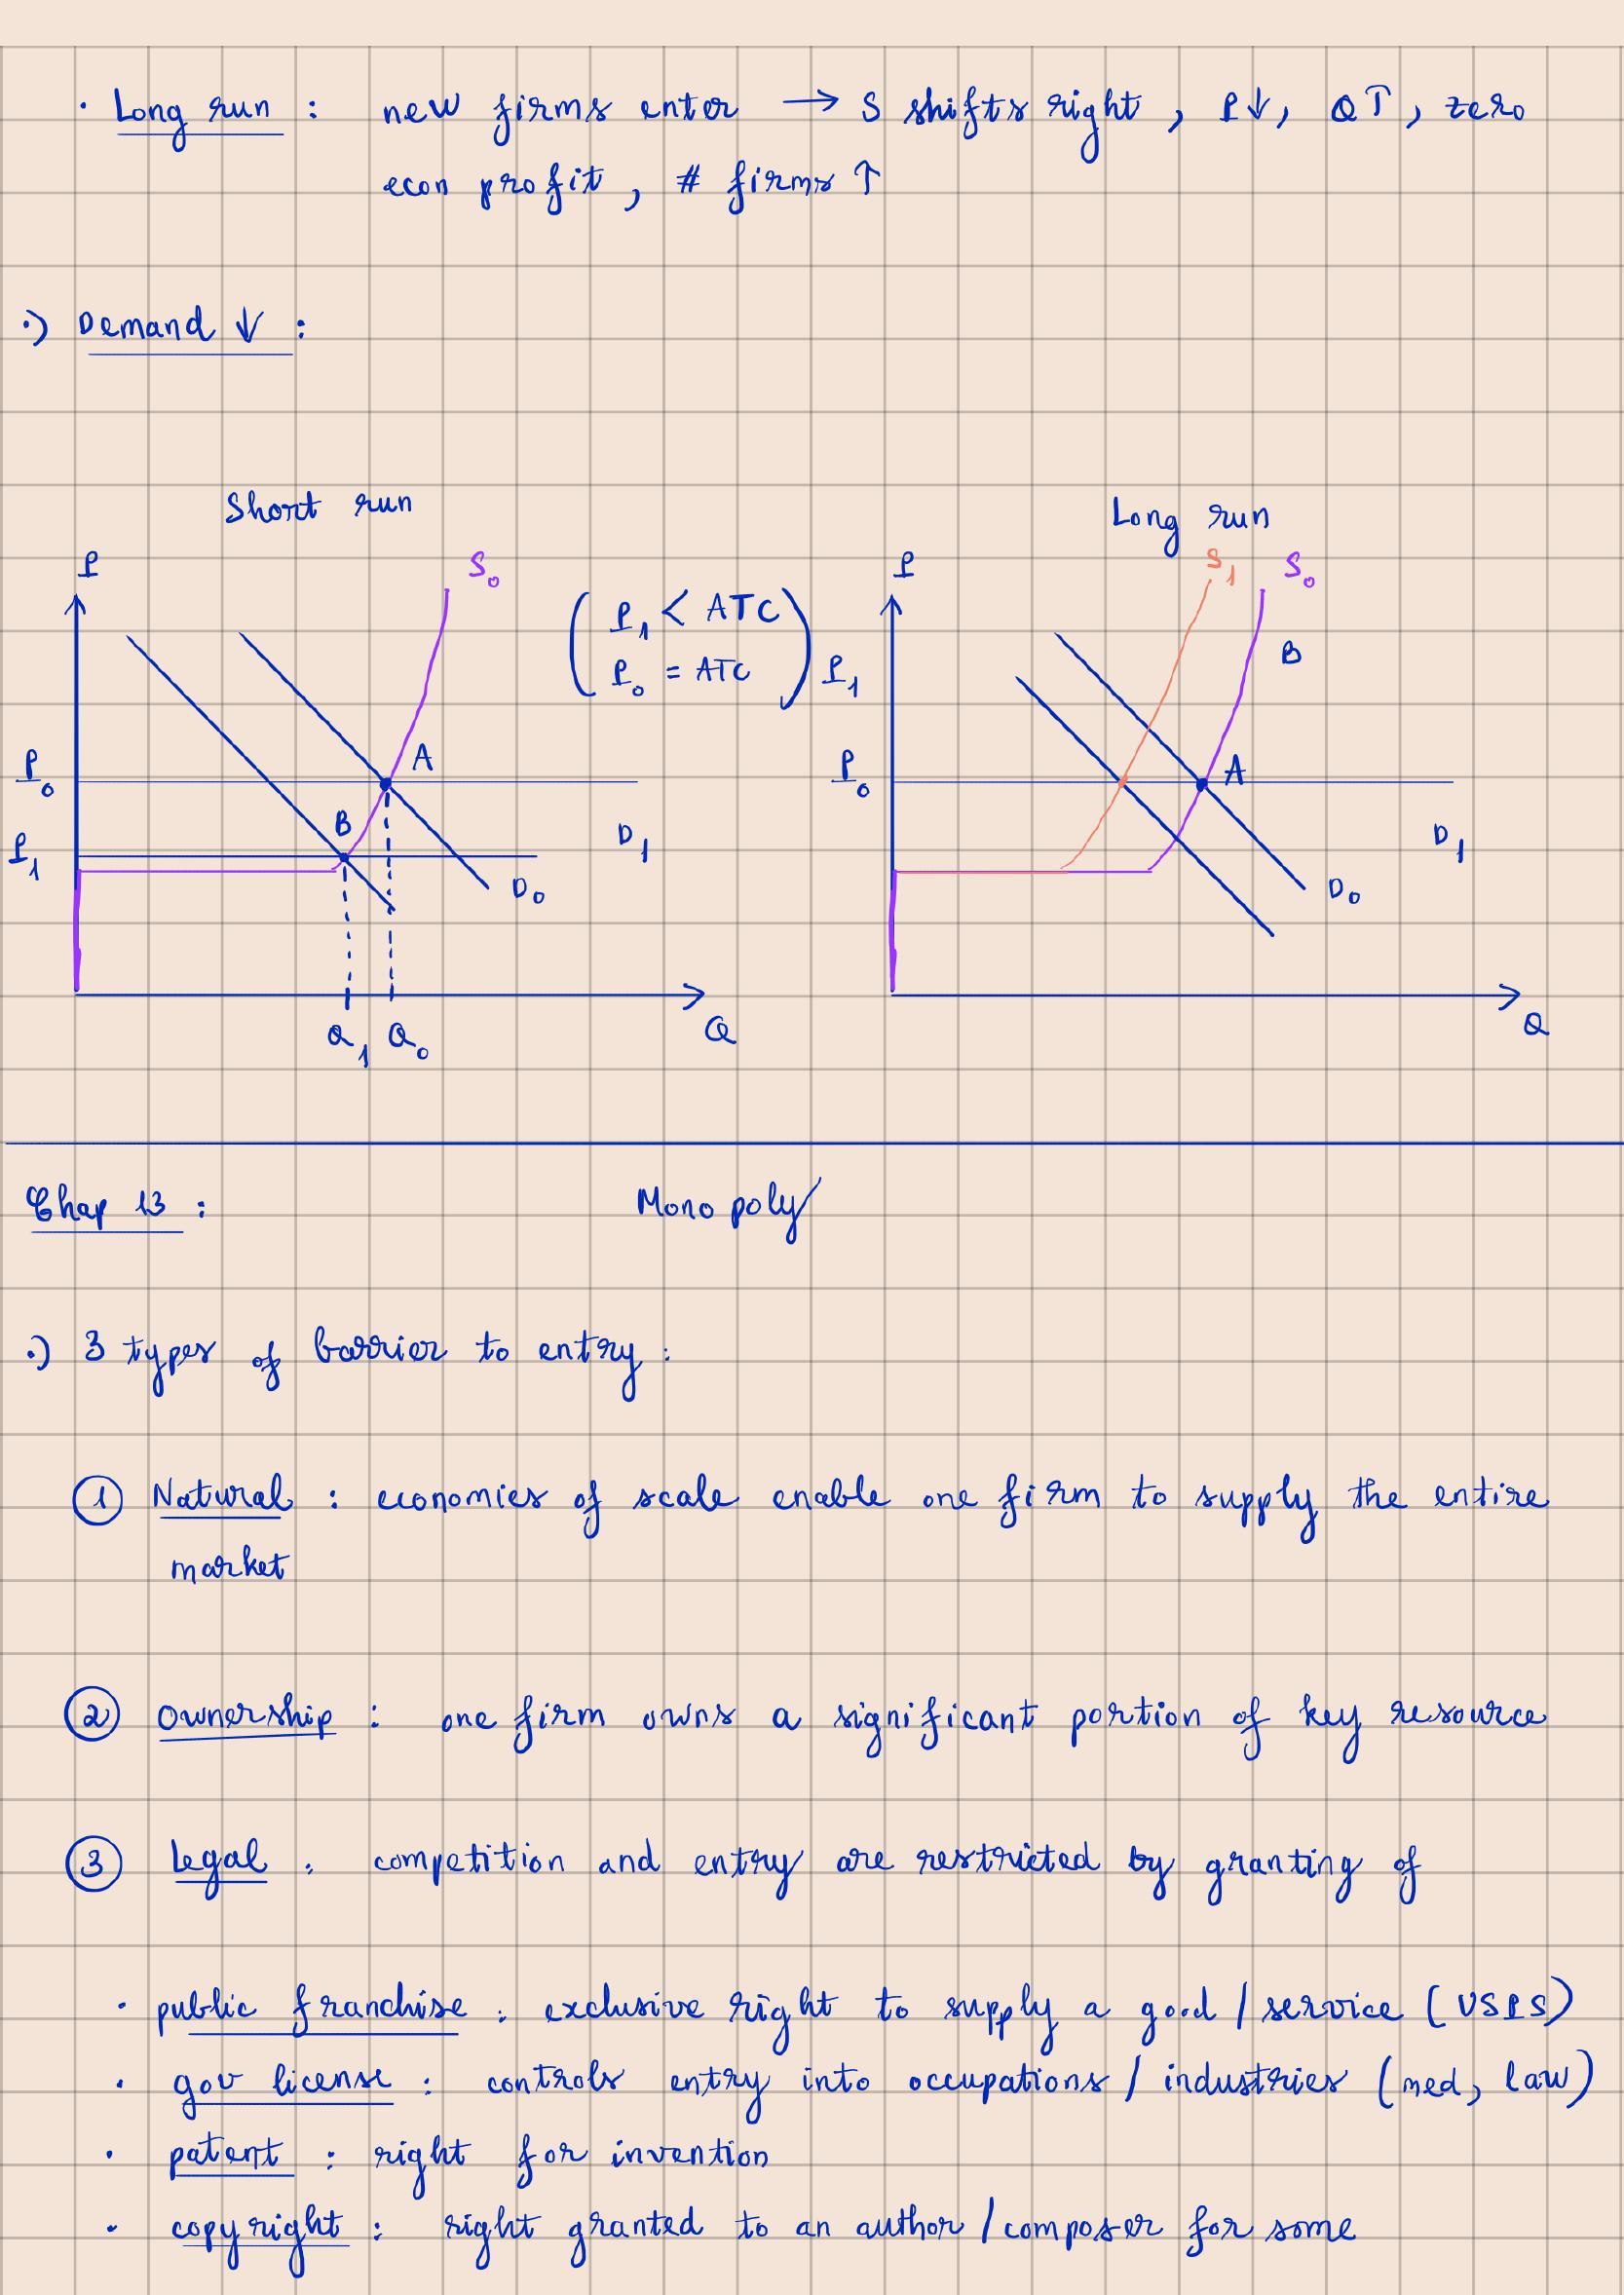 · Long run : new firms enter → S shifts right , P↓, Q↑, zero
econ profit , # firms ↑
·) Demand ↓ :
Short run
Long run
P
S₀
( P₁ < ATC
P₀ = ATC )
P₀
A
B
P₁
D₁
D₀
Q₁ Q₀
Q
P
S₁ S₀
B
P₁
P₀
A
D₁
D₀
Q
Chap 13 : Monopoly
·) 3 types of barrier to entry :
① Natural : economies of scale enable one firm to supply the entire
market
② Ownership : one firm owns a significant portion of key resource
③ Legal : competition and entry are restricted by granting of
· public franchise : exclusive right to supply a good / service (USPS)
· gov license : controls entry into occupations / industries (med, law)
· patent : right for invention
· copyright : right granted to an author / composer for some